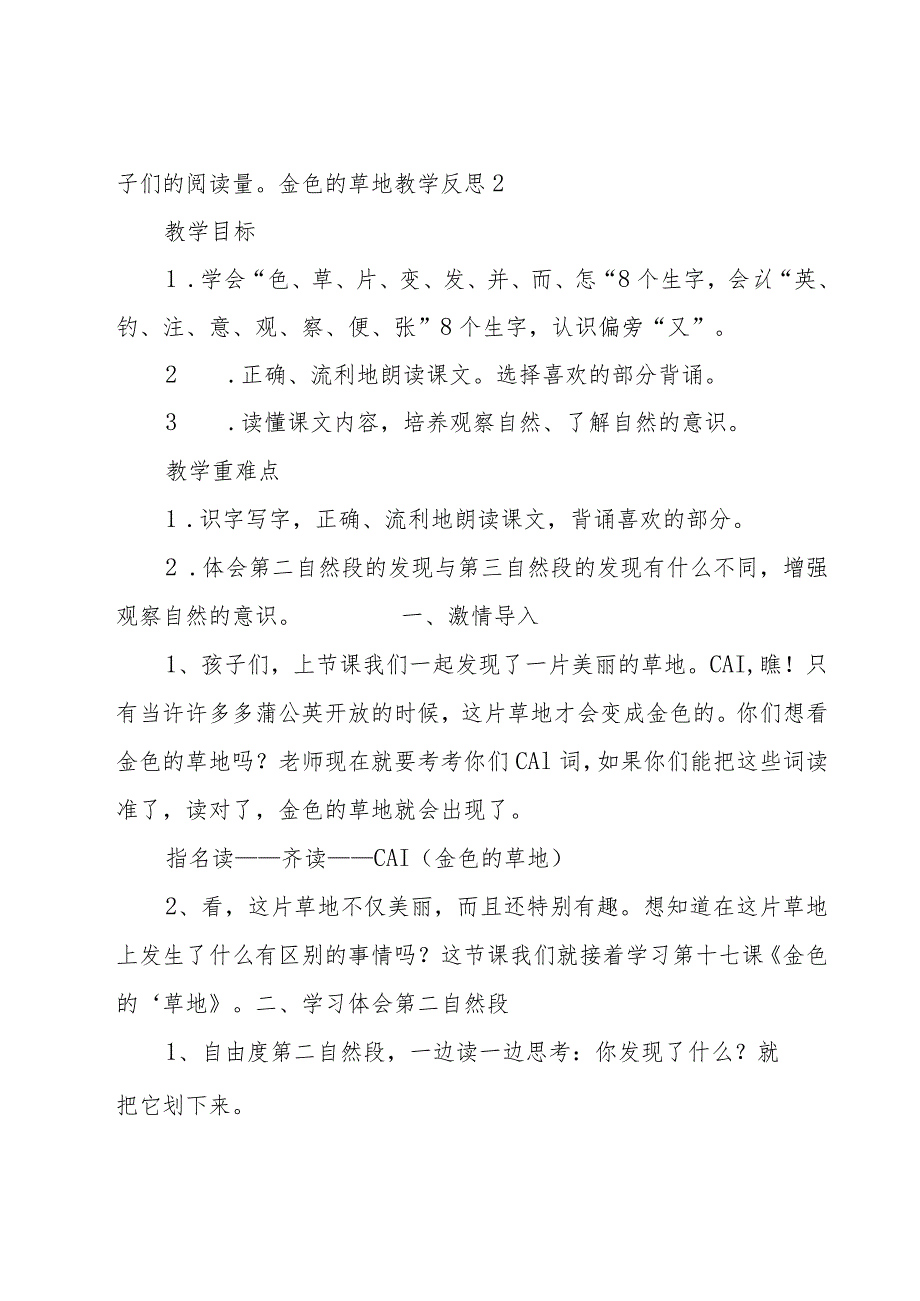 子们的阅读量。金色的草地教学反思2
教学目标
1.学会“色、草、片、变、发、并、而、怎“8个生字，会认“英、
钓、注、意、观、察、便、张”8个生字，认识偏旁“又”。
2 .正确、流利地朗读课文。选择喜欢的部分背诵。
3 .读懂课文内容，培养观察自然、了解自然的意识。
教学重难点
1.识字写字，正确、流利地朗读课文，背诵喜欢的部分。
2.体会第二自然段的发现与第三自然段的发现有什么不同，增强
观察自然的意识。 一、激情导入
1、孩子们，上节课我们一起发现了一片美丽的草地。CAI,瞧！只
有当许许多多蒲公英开放的时候，这片草地才会变成金色的。你们想看
金色的草地吗？老师现在就要考考你们CAl词,如果你们能把这些词读
准了，读对了，金色的草地就会出现了。
指名读——齐读——CAI（金色的草地）
2、看，这片草地不仅美丽，而且还特别有趣。想知道在这片草地
上发生了什么有区别的事情吗？这节课我们就接着学习第十七课《金色
的‘草地》。二、学习体会第二自然段
1、自由度第二自然段，一边读一边思考：你发现了什么？就
把它划下来。